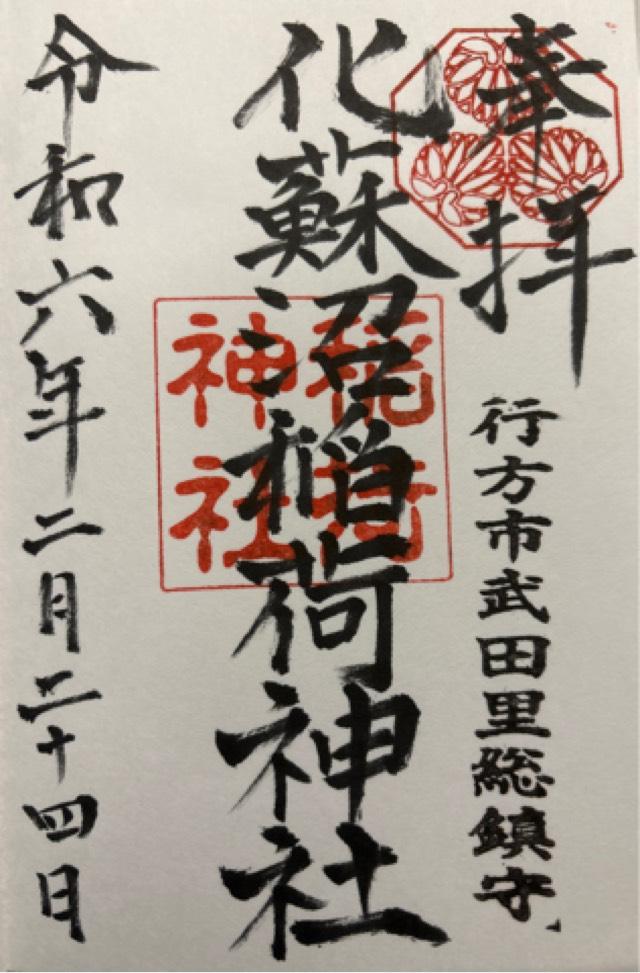 奉拝
行方市武田里総鎮守
化蘇沼稲荷神社
稲荷
神社
令和六年二月二十四日